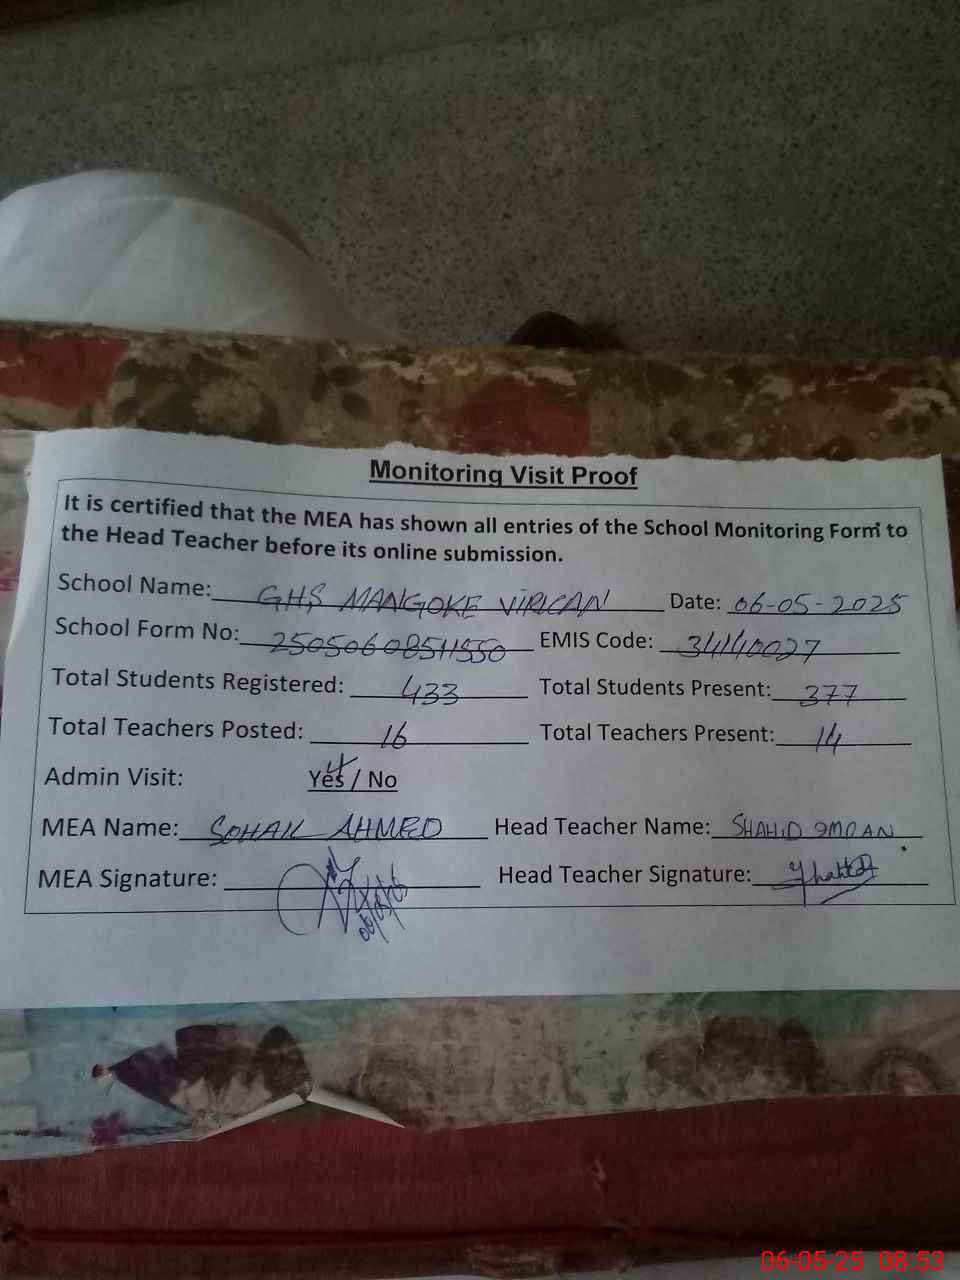 Monitoring Visit Proof
It is certified that the MEA has shown all entries of the School Monitoring Form to
the Head Teacher before its online submission.
School Name: GHS MANGOKE VIRICAN Date: 06-05-2025
School Form No: 25050608511550 EMIS Code: 34140027
Total Students Registered: 433 Total Students Present: 377
Total Teachers Posted: 16 Total Teachers Present: 14
Admin Visit: Yes / No
MEA Name: SOHAIL AHMED Head Teacher Name: SHAHID IMRAN
MEA Signature: Head Teacher Signature:
06-05-25 08:53